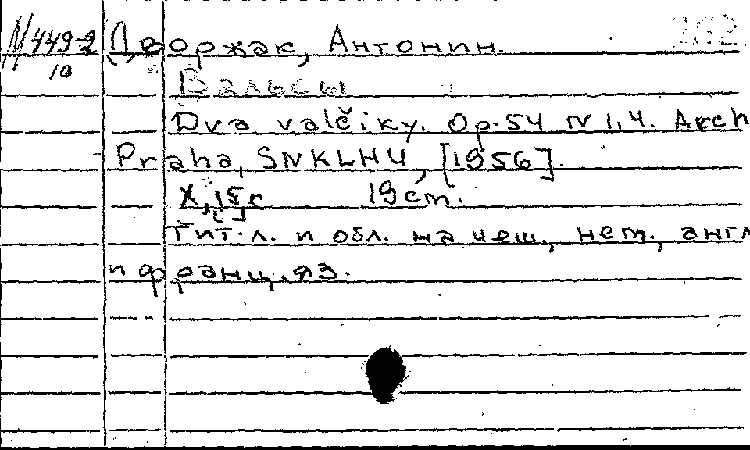 М 449-2 Дворжак, Антонин.
10
Вальсы
Dva valčiky. Op. 54 N 1, 4. Arch
Praha, SNKLHU, [1956].
X, 15 с 19 cm.
Тит. л. и обл. на чеш., нем., англ
и франц. яз.